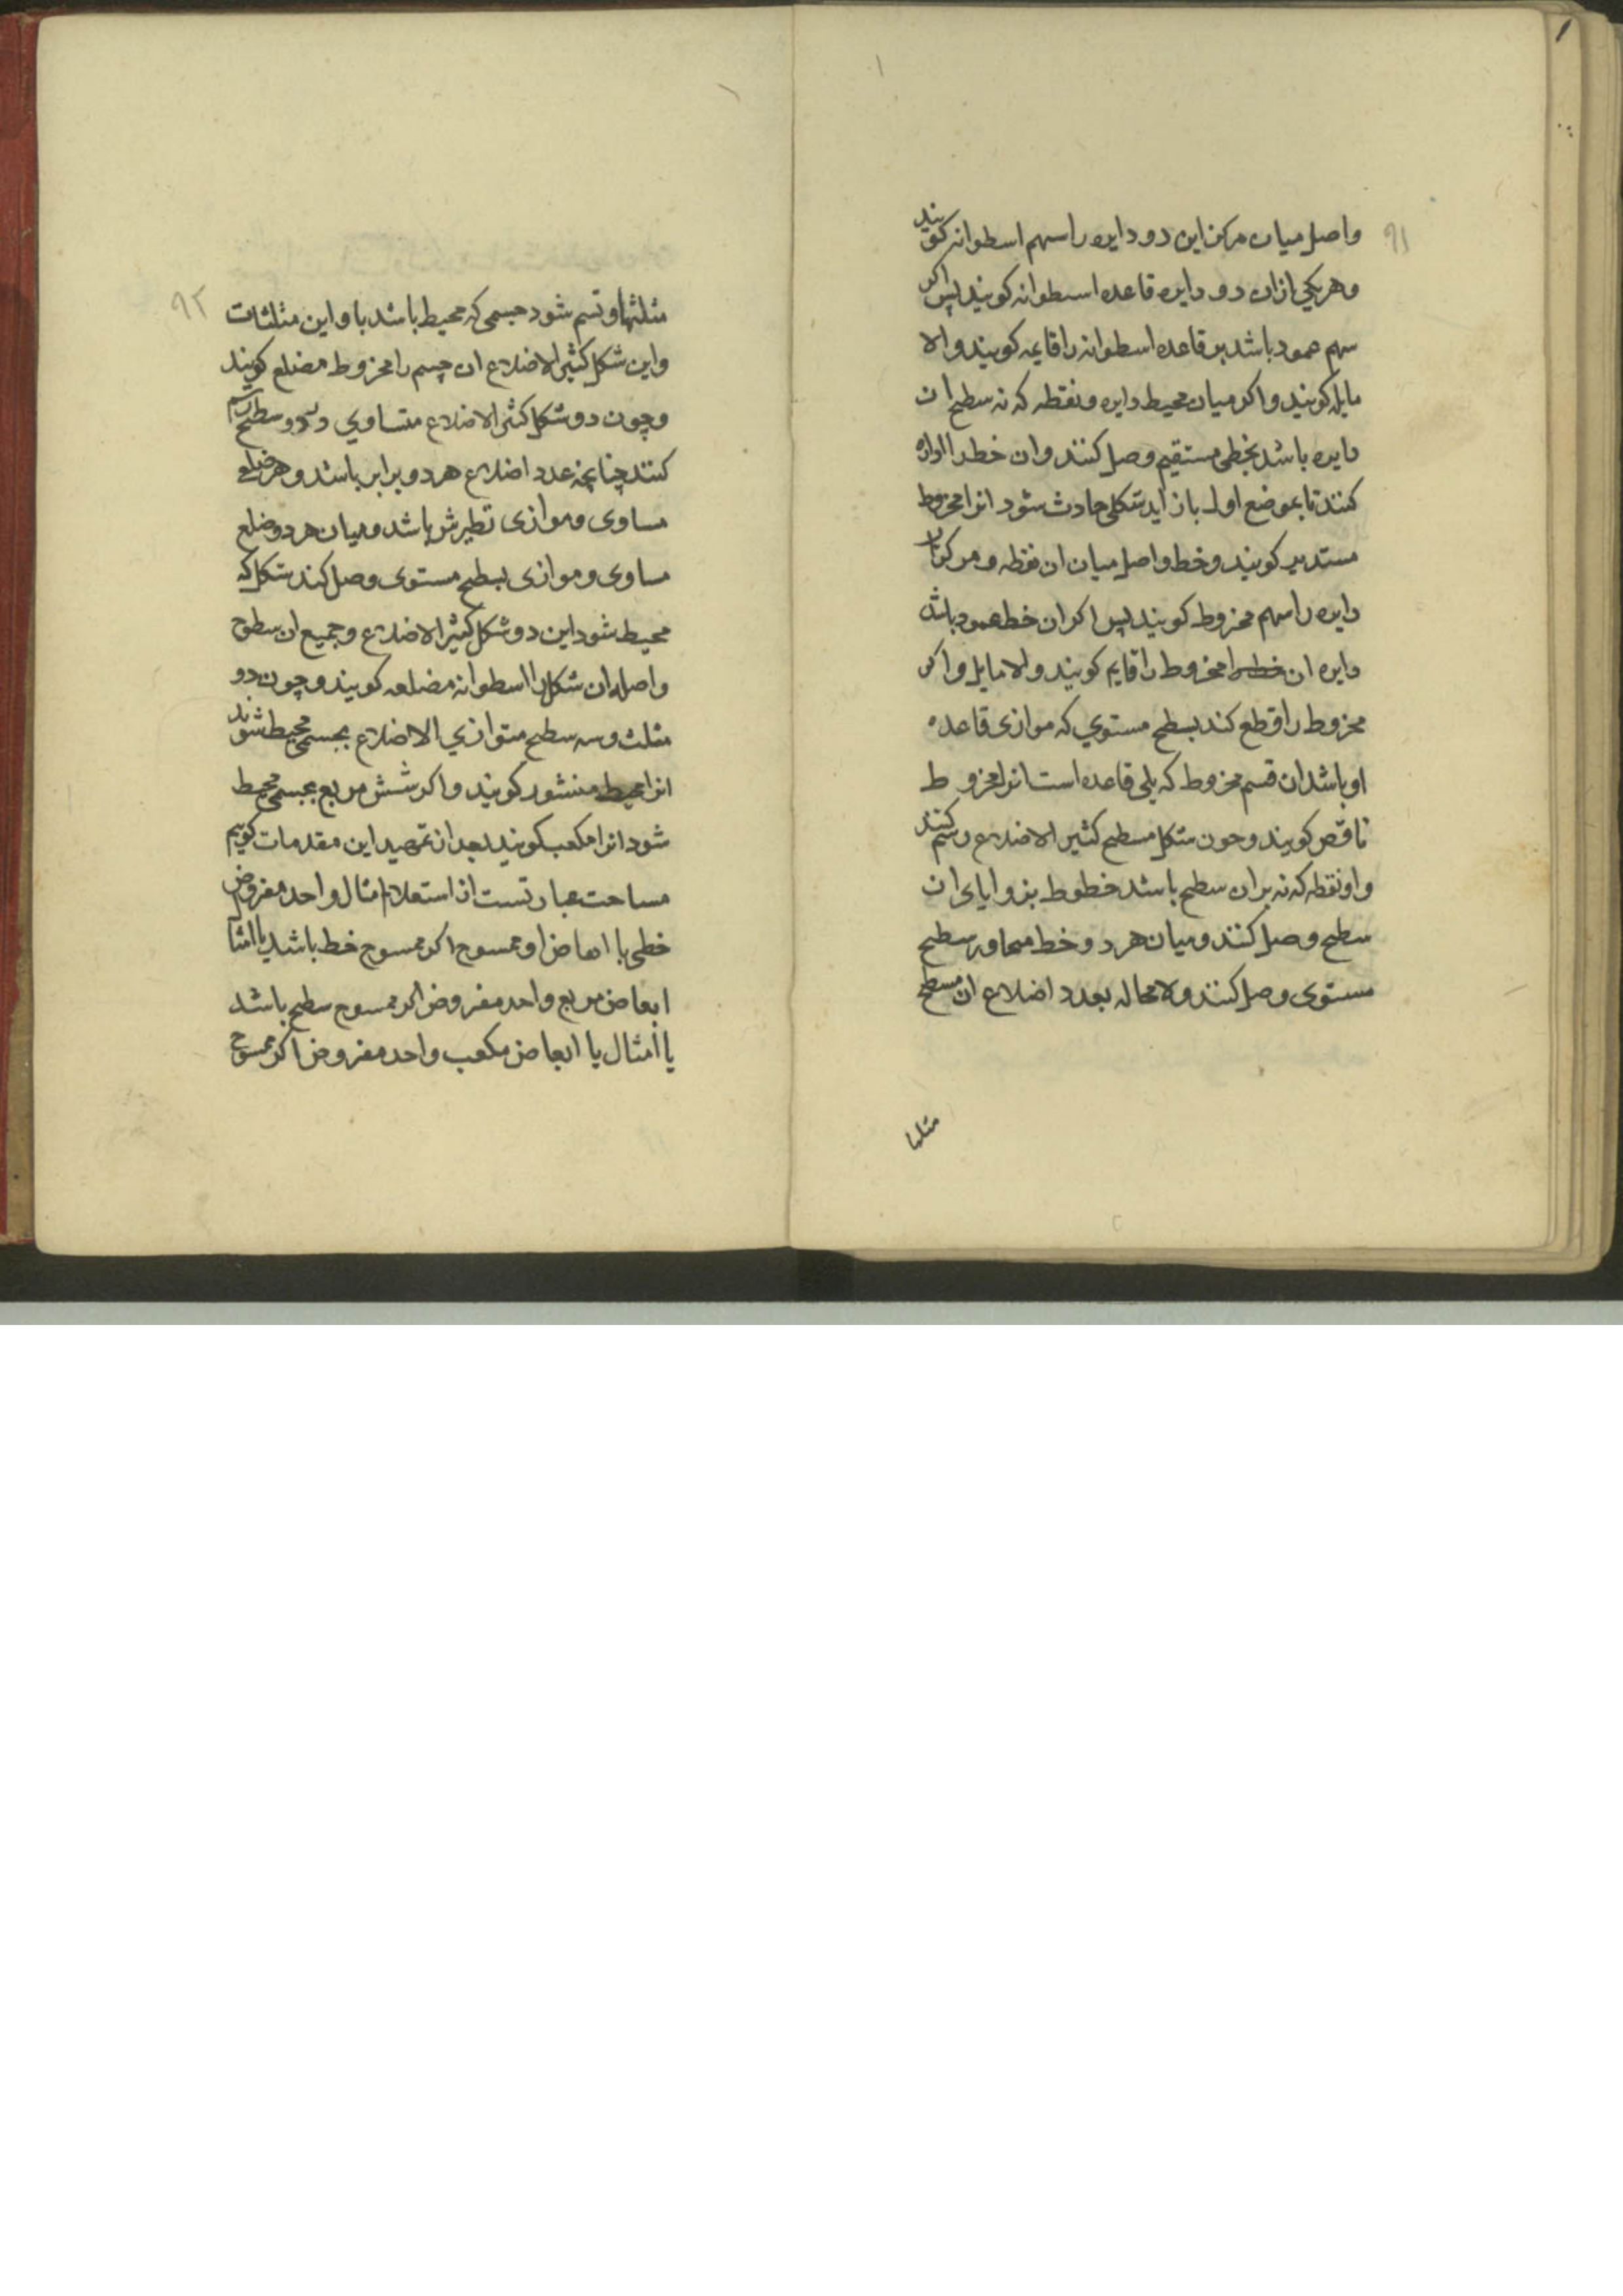 ۹۱
واصل میان مرکز این دو دایره را سهم اسطوانه کویند
و هر یکی از ان دو دایره قاعده اسطوانه کویند پس اکر
سهم عمود باشد بر قاعده اسطوانه را قایمه کویند و الا
مایله کویند و اکر میان محیط دایره و نقطه که نه سطح ان
دایره باشد بخطی مستقیم وصل کنند و ان خط را اداره
کنند تا بموضع اول باز اید شکلی حادث شود انرا مخروط
مستدیر کویند و خط واصل میان ان نقطه و مرکز ان
دایره را سهم مخروط کویند پس اکر ان خط عمود باشد
دایره ان خط را مخروط را قایم کویند و الا مایل و اکر
مخروط را قطع کند بسطح مستوی که موازی قاعده
او باشد ان قسم مخروط که یلی قاعده است انرا مخروط
ناقص کویند و چون شکل مسطح کثیر الاضلاع رسم کنند
و او نقطه که نه بران سطح باشد خطوط بزوایای ان
سطح وصل کنند و میان هر دو خط متجاور سطح
مستوی وصل کنند و لا محاله بعدد اضلاع ان مسطح
مثلثها
۹۲
مثلثها وتسم شود جسمی که محیط باشد باو این مثلثات
و این شکل کثیر الاضلاع ان جسم را مخروط مضلع کویند
و چون دو شکل کثیر الاضلاع متساوی در دو سطح رسم
کنند چنانچه عدد اضلاع هر دو برابر باشد و هر ضلع
مساوی و موازی نظیرش باشد و میان هر دو ضلع
مساوی و موازی بسطح مستوی وصل کند شکل که
محیط شود این دو شکل کثیر الاضلاع و جمیع ان سطوح
واصله ان شکل را اسطوانه مضلعه کویند و چون دو
مثلث و سه سطح متوازی الاضلاع بجسمی محیط شوند
انرا محیط منشور کویند و اکر شش مربع بجسمی محیط
شود انرا مکعب کویند بعد از تمهید این مقدمات کوییم
مساحت عبارتست از استعلام امثال واحد مفروض
خطی یا ابعاض او ممسوح اکر ممسوح خط باشد یا امثال
ابعاض مربع واحد مفروض اکر ممسوح سطح باشد
یا امثال یا ابعاض مکعب واحد مفروض اکر ممسوح